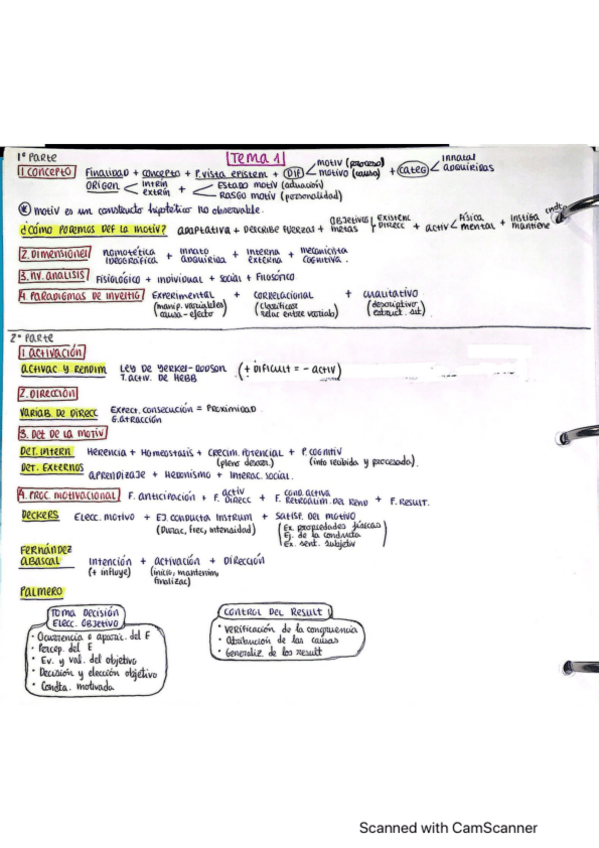 1ª PARTE
TEMA 1
1. CONCEPTO FINALIDAD + CONCEPTO + P. VISTA EPISTEM + DIF < MOTIV (PROCESO) MOTIVO (CAUSA) + CATEG < INNATAS ADQUIRIDAS
ORIGEN < INTRÍN EXTRÍN + < ESTADO MOTIV (ACTUACIÓN) RASGO MOTIV (PERSONALIDAD)
* MOTIV ES UN CONSTRUCTO HIPOTÉTICO NO OBSERVABLE.
¿CÓMO PODEMOS DEF LA MOTIV? ADAPTATIVA + DESCRIBE FUERZAS + OBJETIVOS METAS EXISTEN DIRECC + ACTIV < FÍSICA MENTAL + INSTIGA MANTIENE cndta
2. DIMENSIONES NOMOTÉTICA IDEOGRÁFICA + INNATO ADQUIRIDA + INTERNA EXTERNA + MECANICISTA COGNITIVA.
3. NV. ANALISIS FISIOLÓGICO + INDIVIDUAL + SOCIAL + FILOSÓFICO.
4. PARADIGMAS DE INVESTIG EXPERIMENTAL + CORRELACIONAL + CUALITATIVO
(manip. variables) (clasificar (descriptivo,
causa-efecto relac entre variabs)
2ª PARTE
1. ACTIVACIÓN
ACTIVAC Y RENDIM LEY DE YERKER-DODSON (+ DIFICULT = - ACTIV)
T. ACTIV. DE HEBB
2. DIRECCIÓN
VARIAB. DE DIRECC EXPECT. CONSECUCIÓN = PROXIMIDAD.
G. ATRACCIÓN
3. DET DE LA MOTIV
DET. INTERN HERENCIA + HOMEOSTASIS + CRECIM. POTENCIAL + P. COGNITIV
(pleno desarr.) (info recibida y procesada).
DET. EXTERNOS APRENDIZAJE + HEDONISMO + INTERAC. SOCIAL.
4. PROC. MOTIVACIONAL F. ANTICIPACIÓN + F. ACTIV DIRECC + F. COND. ACTIVA RETROALIM. DEL REND + F. RESULT.
DECKERS ELECC. MOTIVO + EJ. CONDUCTA INSTRUM + SATISF. DEL MOTIVO
(Durac, frec, intensidad) (Ex. propiedades físicas
Ej. de la conducta
Ex. sent. subjetiv)
FERNÁNDEZ ABASCAL INTENCIÓN + ACTIVACIÓN + DIRECCIÓN
(+ influye) (inicio, mantenim, finalizac)
PALMERO
TOMA DECISIÓN
ELECC. OBJETIVO
• Ocurrencia o aparic. del E
• Percep. del E
• Ev. y val. del objetivo
• Decisión y elección objetivo
• Condta. motivada
CONTROL DEL RESULT
• Verificación de la congruencia
• Atribución de las causas
• Generaliz de los result
Scanned with CamScanner